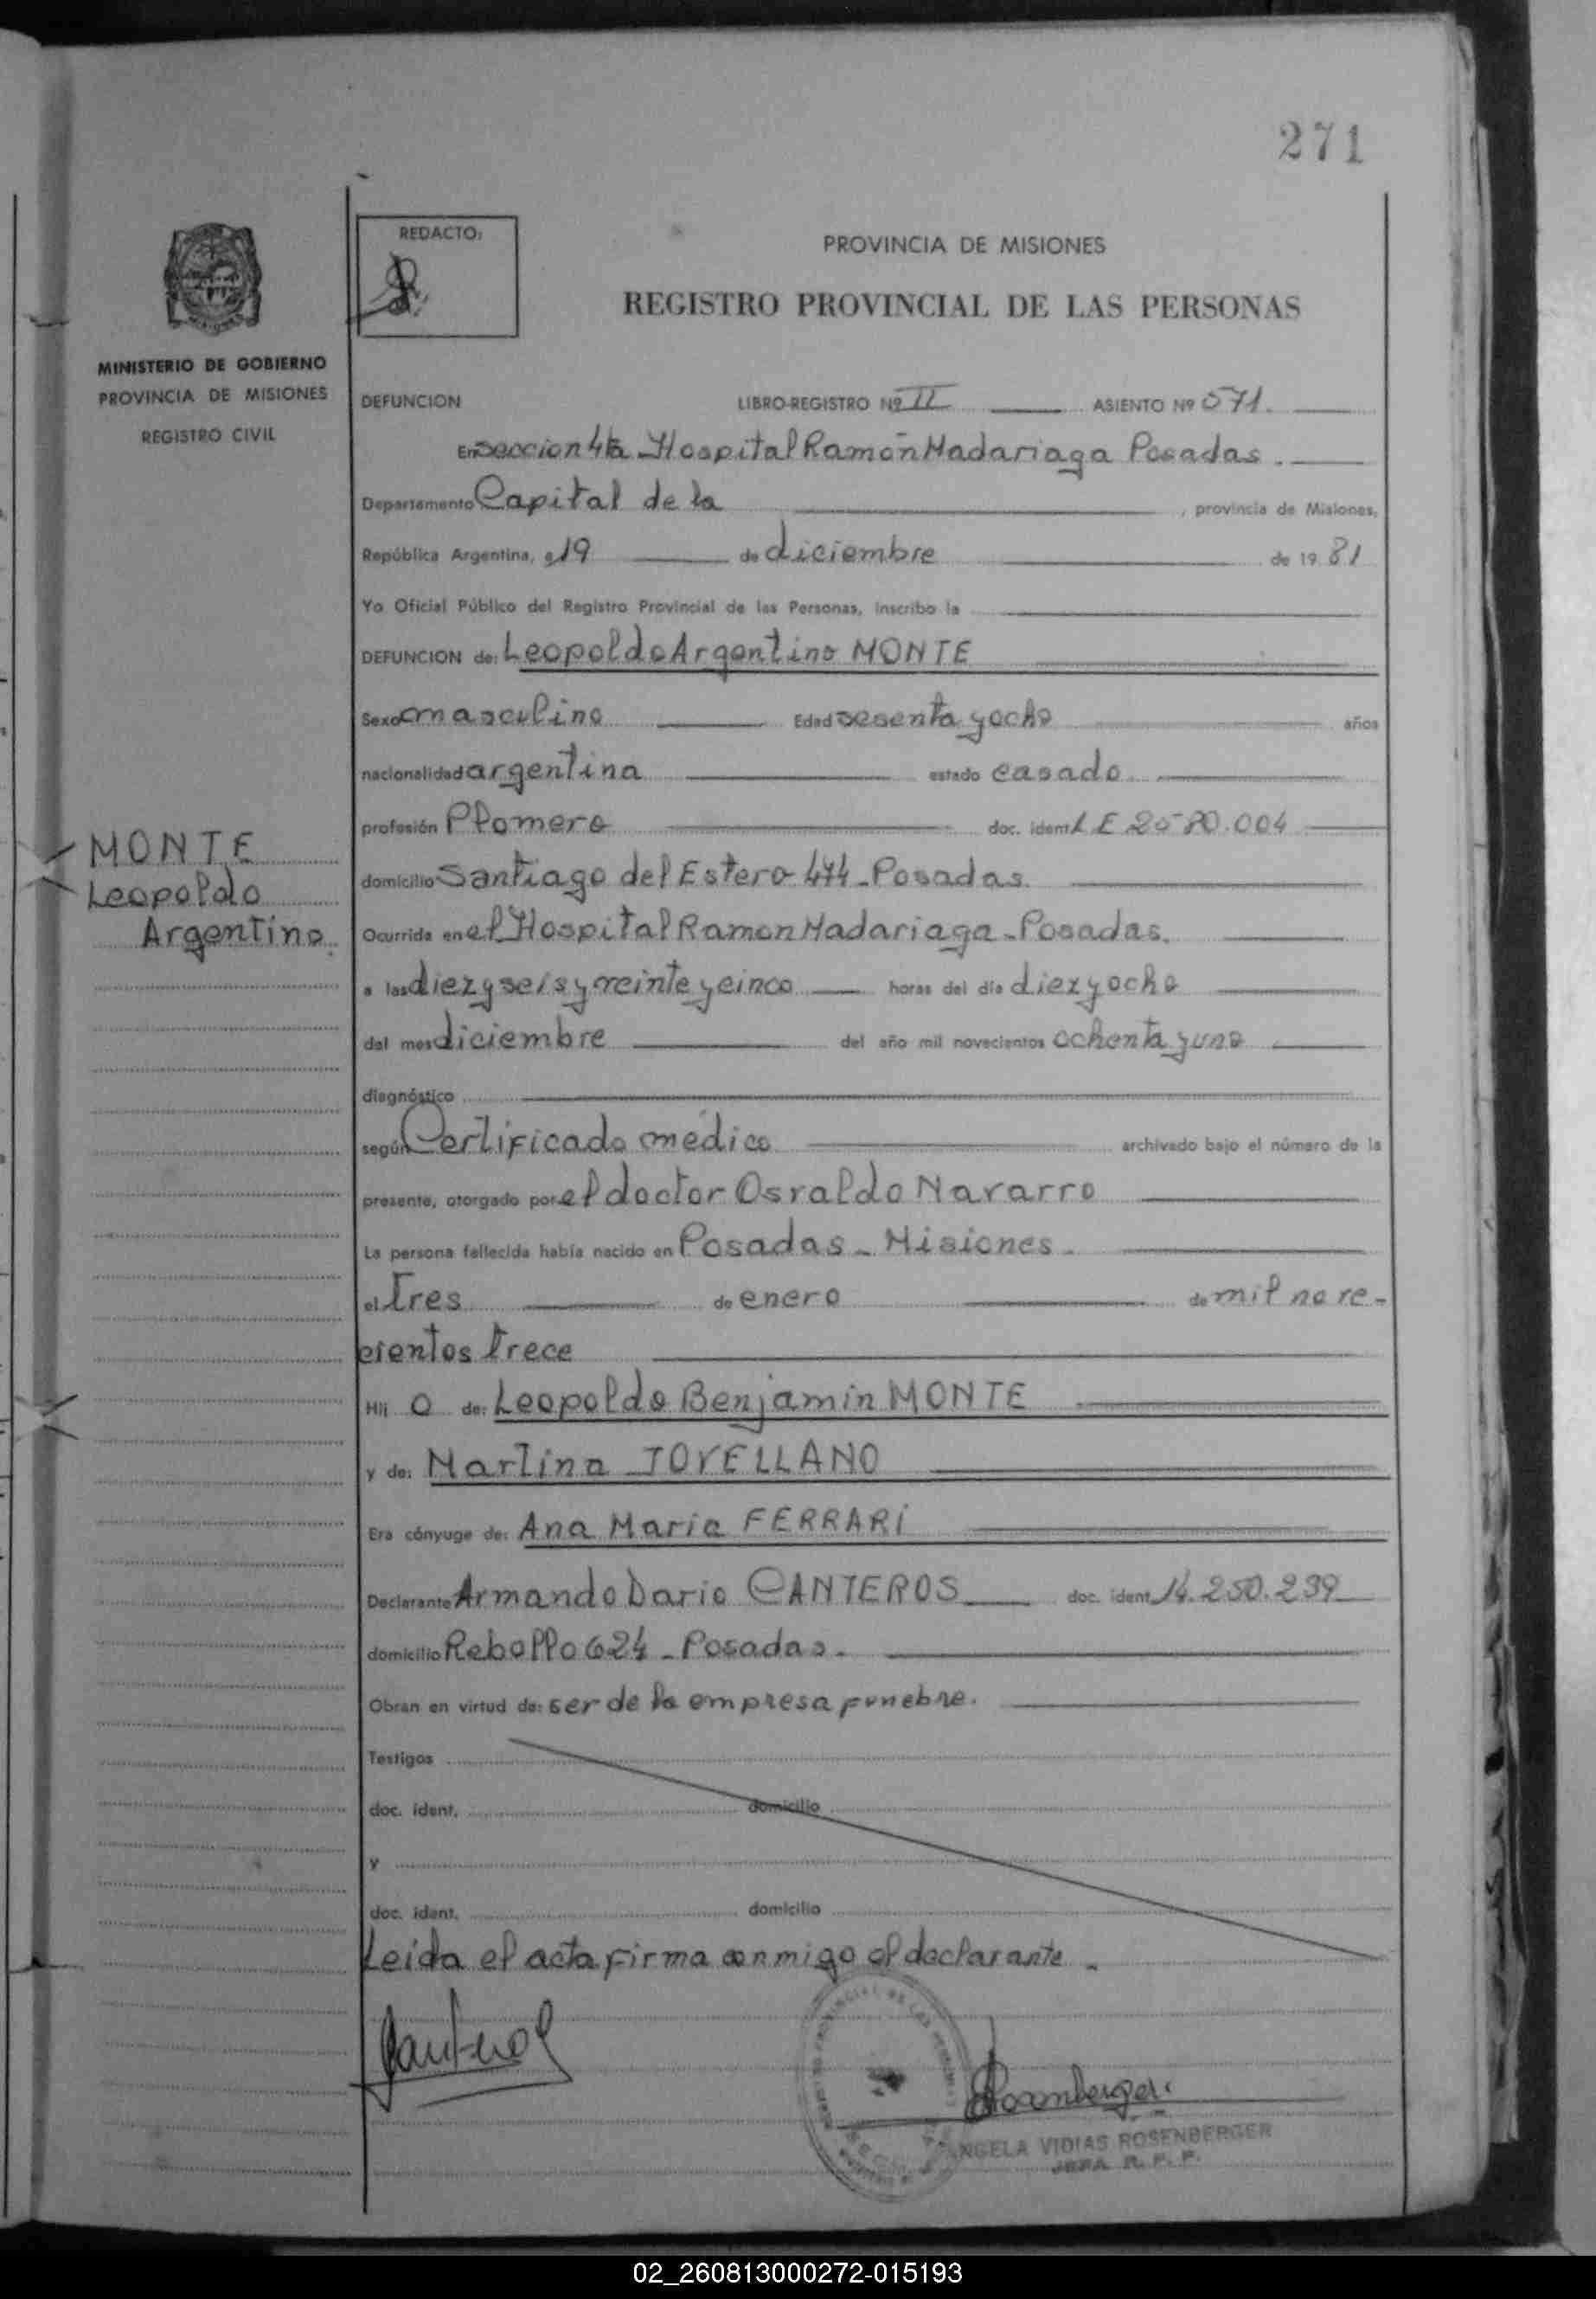 271
REDACTO:
PROVINCIA DE MISIONES
REGISTRO PROVINCIAL DE LAS PERSONAS
MINISTERIO DE GOBIERNO
PROVINCIA DE MISIONES
REGISTRO CIVIL
DEFUNCION LIBRO-REGISTRO Nº II ASIENTO Nº 571.
En seccion 4ta Hospital Ramón Madariaga Posadas.
Departamento Capital de la , provincia de Misiones,
República Argentina, a 19 de diciembre de 19 81
Yo Oficial Público del Registro Provincial de las Personas, inscribo la
DEFUNCION de: Leopoldo Argentino MONTE
Sexo masculino Edad sesenta y ocho años
nacionalidad argentina estado casado.
profesión Plomero doc. ident. L.E 2580.004
MONTE
Leopoldo
Argentino.
domicilio Santiago del Estero 474 - Posadas.
Ocurrida en el Hospital Ramon Madariaga - Posadas.
a las diez y seis y veinte y cinco horas del día diez y ocho
del mes diciembre del año mil novecientos ochenta y uno
diagnóstico
según Certificado médico archivado bajo el número de la
presente, otorgado por el doctor Osvaldo Navarro
La persona fallecida había nacido en Posadas - Misiones.
el tres de enero de mil nove-
cientos trece
Hij o de: Leopoldo Benjamin MONTE
y de: Martina JOVELLANO
Era cónyuge de: Ana Maria FERRARI
Declarante Armando Dario CANTEROS doc. ident. 14.250.239
domicilio Rebollo 624 - Posadas.
Obran en virtud de: ser de la empresa funebre.
Testigos
doc. ident. domicilio
y
doc. ident. domicilio
Leida el acta firma conmigo el declarante.
ANGELA VIDIAS ROSENBERGER
JEFA R. P. P.
02_260813000272-015193